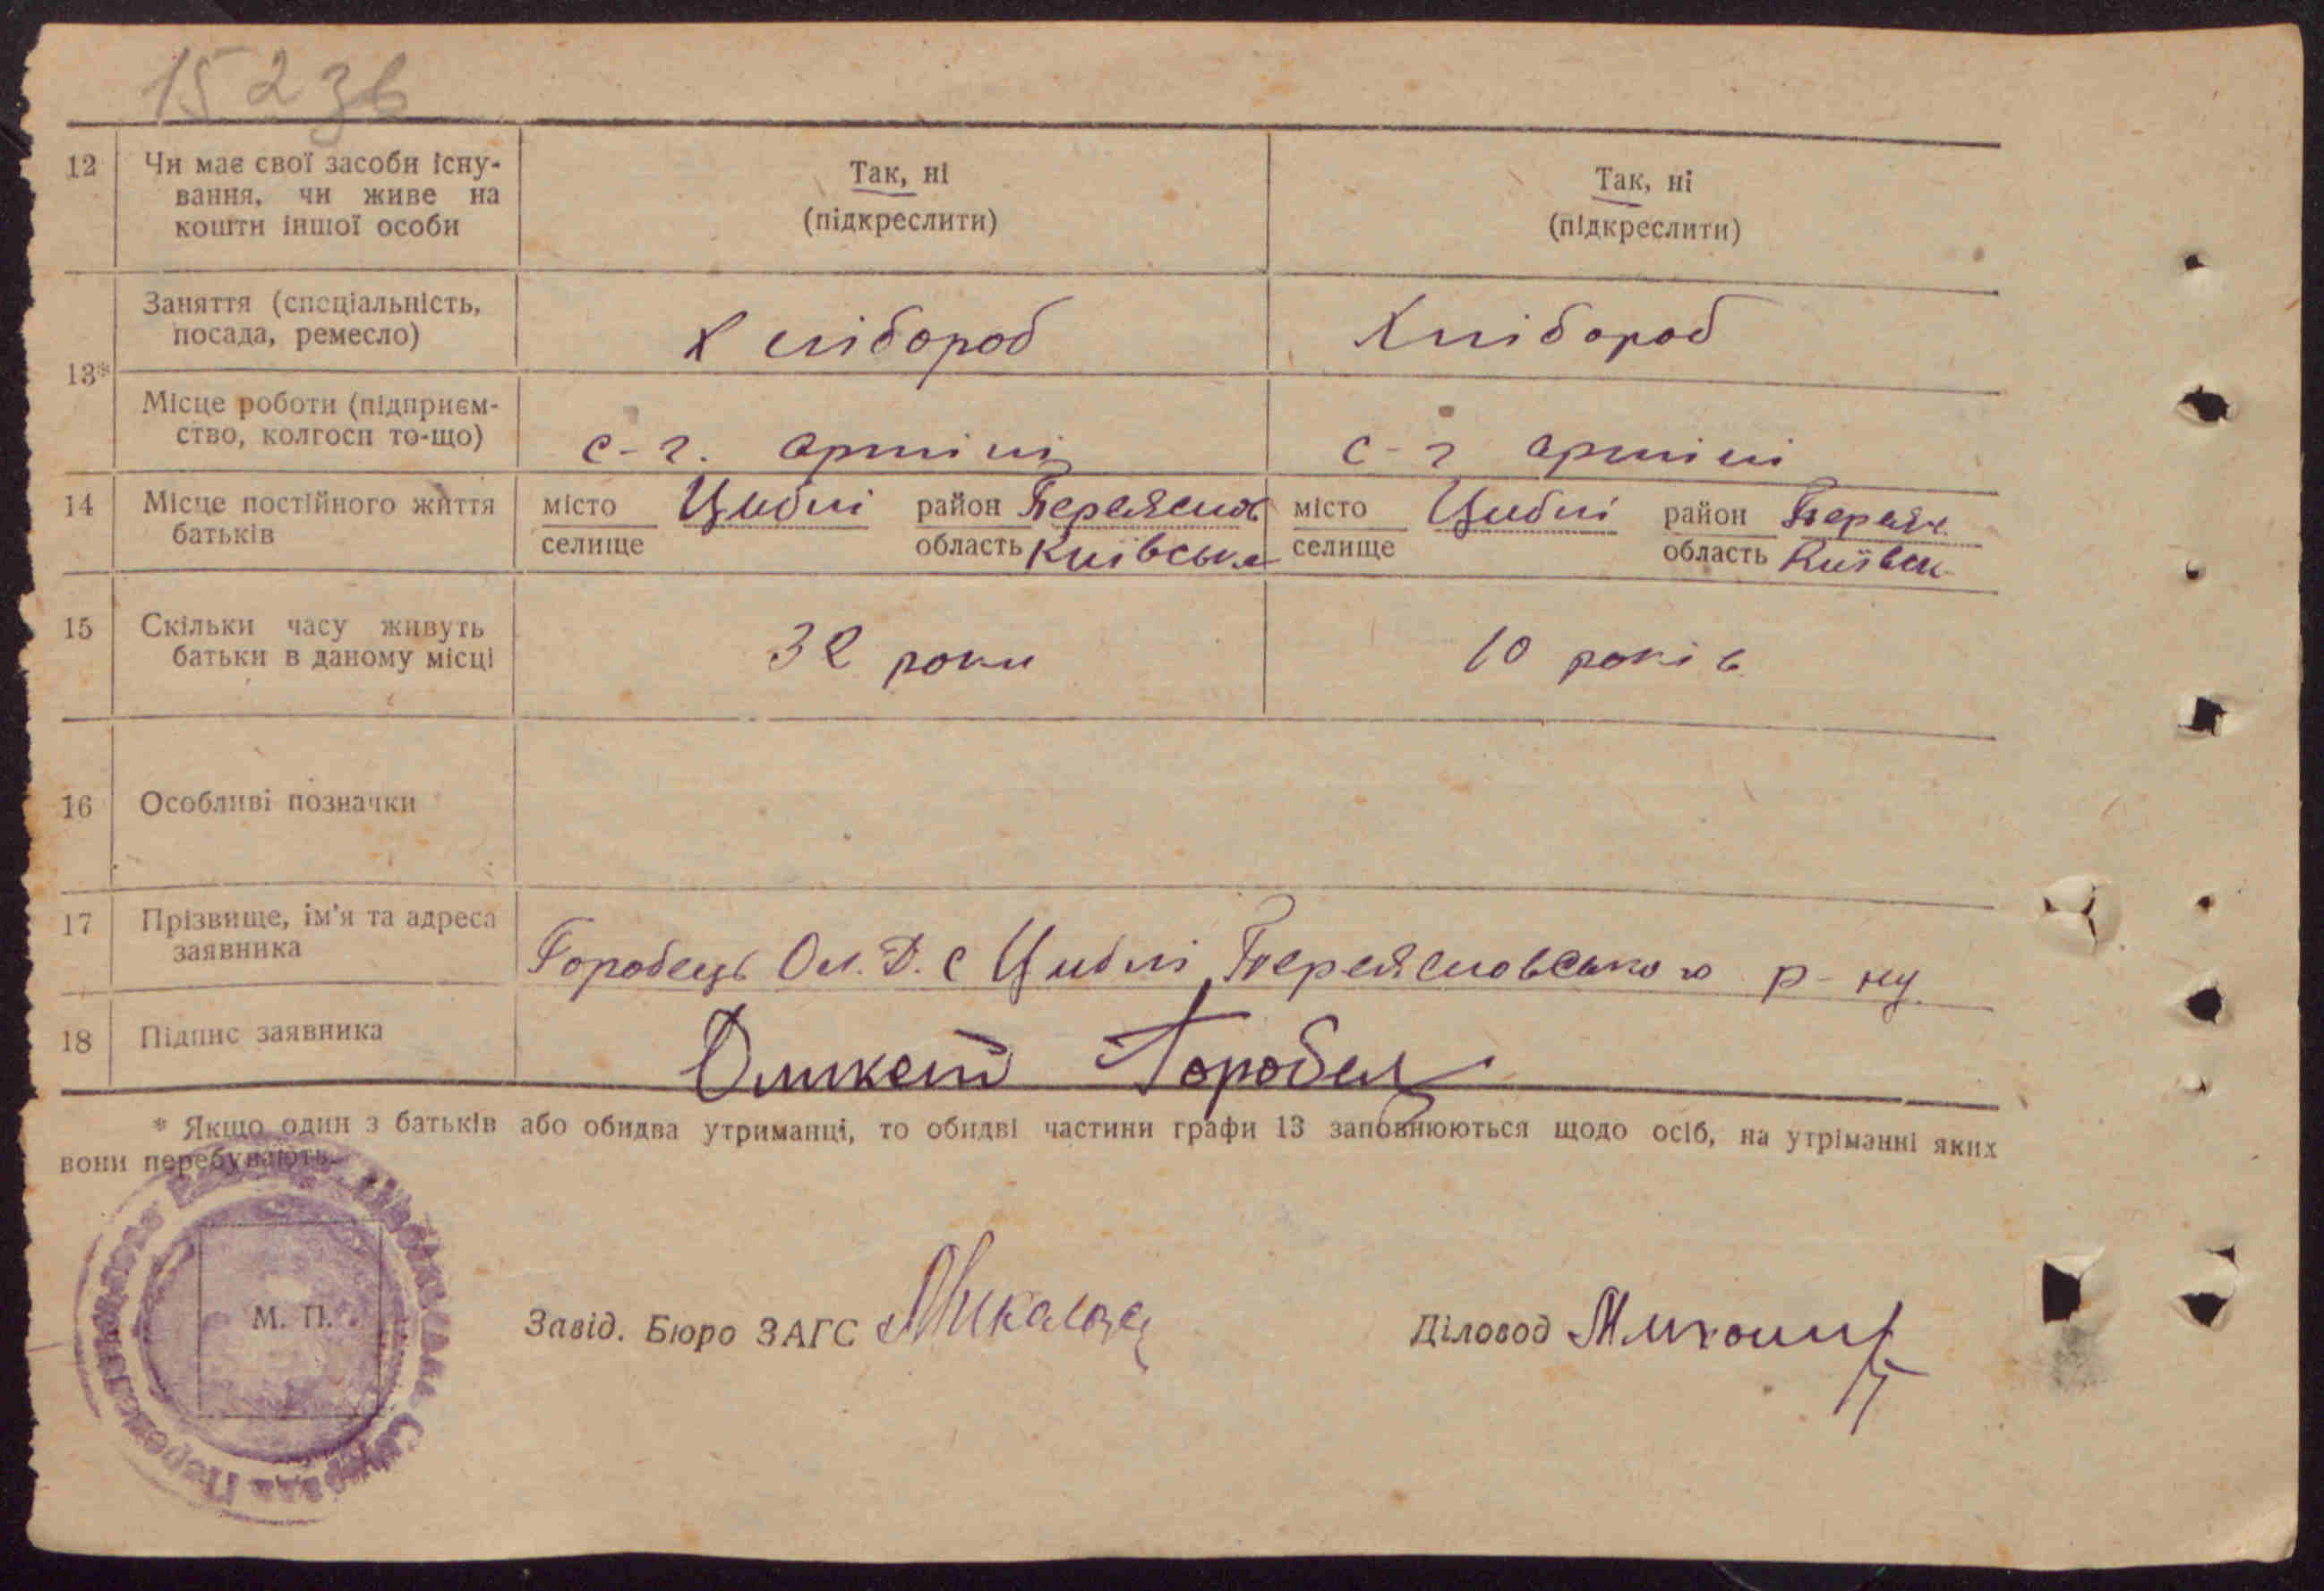 15236
12 Чи має свої засоби існу- Так, ні Так, ні
вання, чи живе на (підкреслити) (підкреслити)
кошти іншої особи
13* Заняття (спеціальність, Хлібороб Хлібороб
посада, ремесло)
Місце роботи (підприєм- с-г. артілі с-г артілі
ство, колгосп то-що)
14 Місце постійного життя місто Циблі район Переяслов місто Циблі район Переясл.
батьків селище область Київська селище область Київськ
15 Скільки часу живуть 32 роки 10 років
батьки в даному місці
16 Особливі позначки
17 Прізвище, ім'я та адреса Горобець Ол. Д. с Циблі Переясловського р-ну
заявника
18 Підпис заявника Горобец
* Якщо один з батьків або обидва утриманці, то обидві частини графи 13 заповнюються щодо осіб, на утріманні яких
вони перебувають.
М. П.
Завід. Бюро ЗАГС Діловод